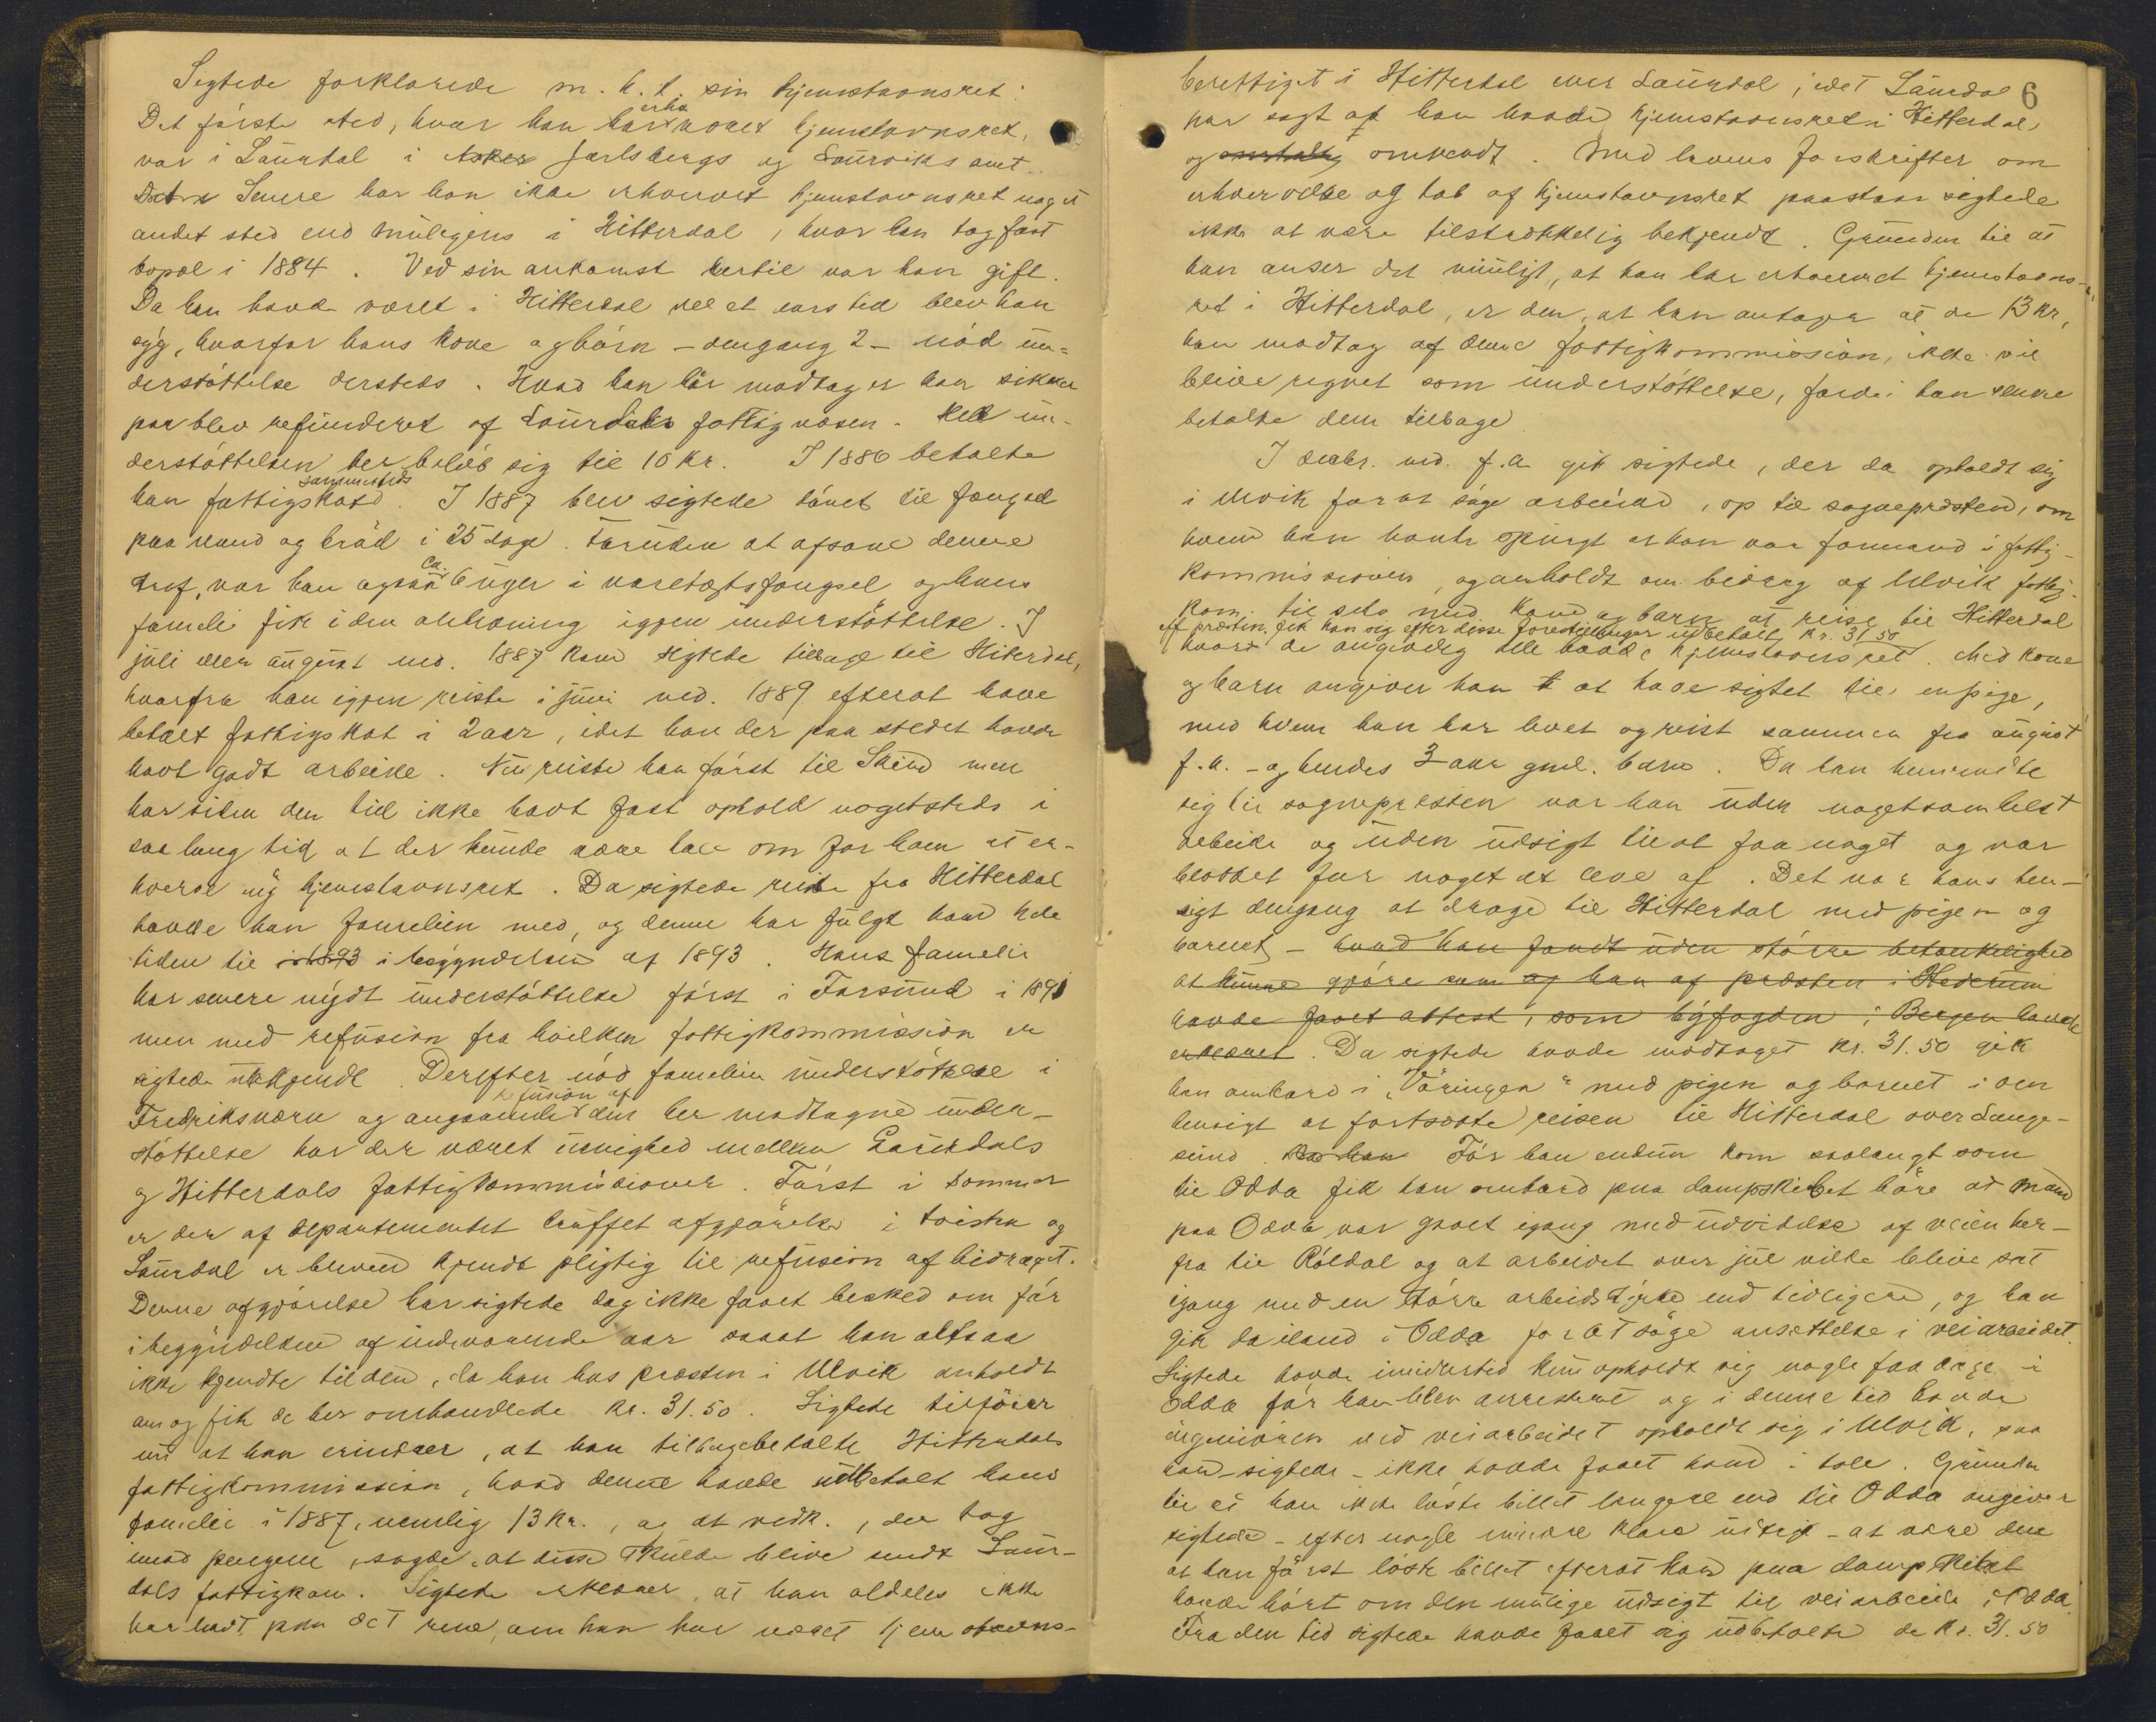 Sigtede forklarede m. h. t. sin hjemstavnsret:
Det første sted, hvor han har erhvervet hjemstavnsret,
var i Laurdal i Asker Jarlsbergs og Laurviks amt.
Senere har han ikke erhvervet hjemstavnsret noget
andet sted end muligens i Hitterdal, hvor han tog fast
bopæl i 1884. Ved sin ankomst hertil var han gift.
Da han havde været i Hitterdal vel et aars tid blev han
syg, hvorfor hans kone og børn – dengang 2 – nød un-
derstøttelse dersteds. Hvad han her modtog er han sikker
paa blev refunderet af Laurdals fattigvæsen. Hele un-
derstøttelsen her beløb sig til 10 Kr. I 1886 betalte
han fattigskat sammesteds. I 1887 blev sigtede dømt til fængsel
paa vand og brød i 25 dage. Foruden at afsone denne
straf, var han ogsaa ca. 6 uger i varetægtsfængsel og hans
familie fik i den anledning igjen understøttelse. I
juli eller august md. 1887 kom sigtede tilbage til Hiterdal,
hvorfra han igjen reiste i juni md. 1889 efterat have
betalt fattigskat i 2 aar, idet han der paa stedet havde
havt godt arbeide. Nu reiste han først til Skien men
har siden den tid ikke havt fast ophold nogetsteds i
saa lang tid at der kunde være tale om for ham at er-
hverve ny hjemstavnsret. Da sigtede reiste fra Hitterdal
havde han familien med, og denne har fulgt ham hele
tiden til i 1893 i begyndelsen af 1893. Hans familie
har senere nydt understøttelse først i Farsund i 1891
men med refusion fra hvilken fattigkommission er
sigtede ubekjendt. Derefter nød familien understøttelse i
Fredriksværn og angaaende refusion af den her modtagne under-
støttelse har der været uenighed mellem Laurdals
og Hitterdals fattigkommissioner. Først i sommer
er der af departementet truffet afgjørelse i tvisten og
Laurdal er bleven kjendt pligtig til refusion af bidraget.
Denne afgjørelse har sigtede dog ikke faaet besked om før
i begyndelsen af indeværende aar saaat han altsaa
ikke kjendte til den, da han hos præsten i Ulvik anholdt
om og fik de her omhandlede Kr. 31.50. Sigtede tilføier
nu at han erindrer, at han tilbagebetalte Hitterdals
fattigkommission, hvad denne havde udbetalt hans
familie i 1887, nemlig 13 Kr., og at vedk., der tog
imod pengene, sagde, at disse skulde blive sendt Laur-
dals fattigkom. Sigtede erklærer at han aldeles ikke
har havt paa det rene, om han har været hjemstavns-
6
berettiget i Hitterdal eller Laurdal, idet Laurdal
har sagt at han havde hjemstavnsret i Hitterdal,
og omvendt. Med lovens forskrifter om
erhvervelse og tab af hjemstavnsret paastaar sigtede
ikke at være tilstrækkelig bekjendt. Grunden til at
han anser det muligt, at han har erhvervet hjemstavns-
ret i Hitterdal, er den, at han antager at de 13 Kr,
han modtog af denne fattigkommission, ikke vil
blive regnet som understøttelse, fordi han senere
betalte dem tilbage.
I decbr. md. f.a. gik sigtede, der da opholdt sig
i Ulvik for at søge arbeide, op til sognepræsten, om
hvem han havde spurgt at han var formand i fattig-
kommissionen, og anholdt om bidrag af Ulvik fattig-
kom. til selv med kone og barn at reise til Hitterdal
Af præsten fik han sig efter disse forestillinger udbetalt Kr. 31.50
hvor de angivelig alle havde hjemstavnsret. Med kone
og barn angiver han at have sigtet til en pige,
med hvem han har levet og reist sammen fra august
f.a. – og hendes 3 aar gml. barn. Da han henvendte
sig til sognepræsten var han uden nogetsomhelst
arbeide og uden udsigt til at faa noget og var
blottet for noget at leve af. Det var hans hen-
sigt dengang at drage til Hitterdal med pigen og
barnet – hvad han fandt uden større betænkelighed
at kunne gjøre som og han af præsten i Hedrum
havde faaet attest, som byfogden i Bergen havde
erklæret. Da sigtede havde modtaget Kr. 31.50 gik
han ombord i „Vøringen“ med pigen og barnet i den
hensigt at fortsætte reisen til Hitterdal over Lange-
sund. Før han endnu kom saalangt som
til Odda fik han ombord paa dampskibet høre at man
paa Odda var gaaet igang med udvidelse af veien her-
fra til Røldal og at arbeidet over jul vilde blive sat
igang med en større arbeidsstyrke end tidligere, og han
gik da iland i Odda for at søge ansættelse i veiarbeidet.
Sigtede havde imidlertid kun opholdt sig nogle faa dage i
Odda før han blev arresteret og i denne tid havde
ingeniøren ved veiarbeidet opholdt sig i Ulvik, saa
han – sigtede – ikke havde faaet ham i tale. Grunden
til at han ikke løste billet længere end til Odda angiver
sigtede – efter nogle mindre klare udsagn – at være den
at han først løste billet efterat han paa dampskibet
havde hørt om den mulige udsigt til veiarbeide i Odda.
Fra den tid sigtede havde faaet sig udbetalte de Kr. 31.50